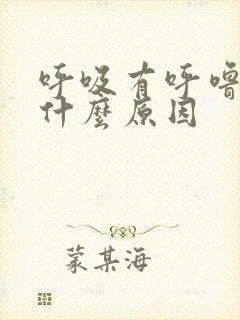 呼吸有呼嚕
什麼原因
蒙某海